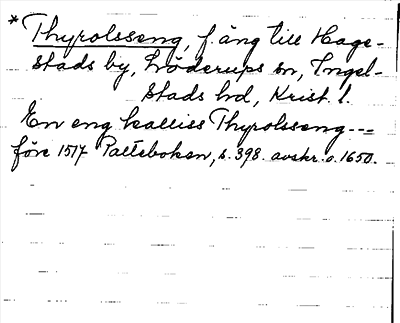 *Thyrolsseng, f. äng till Hage-
stads by, Löderups sn, Ingel-
stads hd, Krist. l.
En eng kalliss Thyrolsseng---
före 1517 Palteboken, s. 398. avskr. o. 1650.